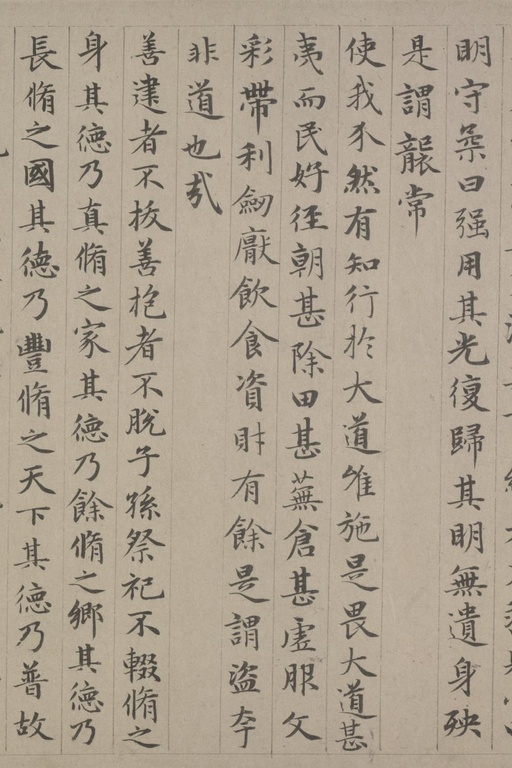 明守柔曰强用其光復歸其明無遺身殃
是謂襲常
使我不然有知行於大道唯施是畏大道甚
夷而民好徑朝甚除田甚蕪倉甚虛服文
彩帶利劒厭飲食資財有餘是謂盜夸
非道也哉
善建者不拔善抱者不脫子孫祭祀不輟脩之
身其德乃真脩之家其德乃餘脩之鄉其德乃
長脩之國其德乃豐脩之天下其德乃普故